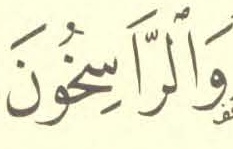 وَٱلرَّاسِخُونَ